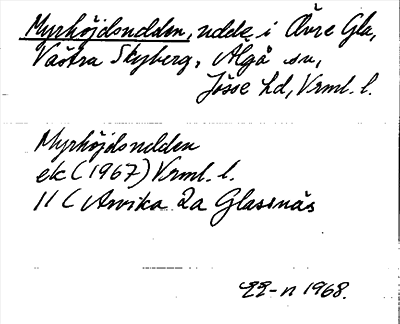 Myrhöjdsudden, udde i Övre Gla,
Västra Skyberg, Älgå sn,
Jösse hd, Vrml. l.
Myrhöjdsudden
ek (1967) Vrml. l.
11 C Arvika 2a Glasenäs
1968.